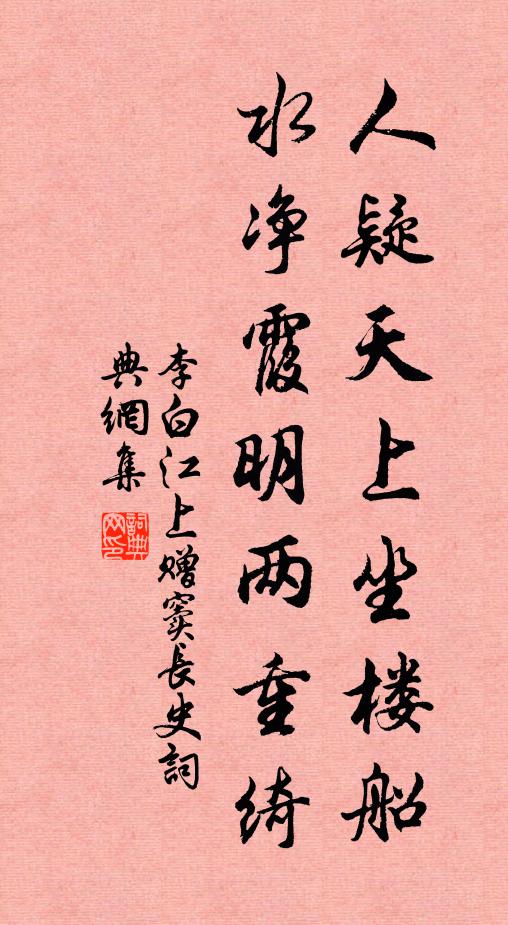 人疑天上坐楼船
水净霞明两重绮
李白江上赠窦長史詞
典網集
詞典網印